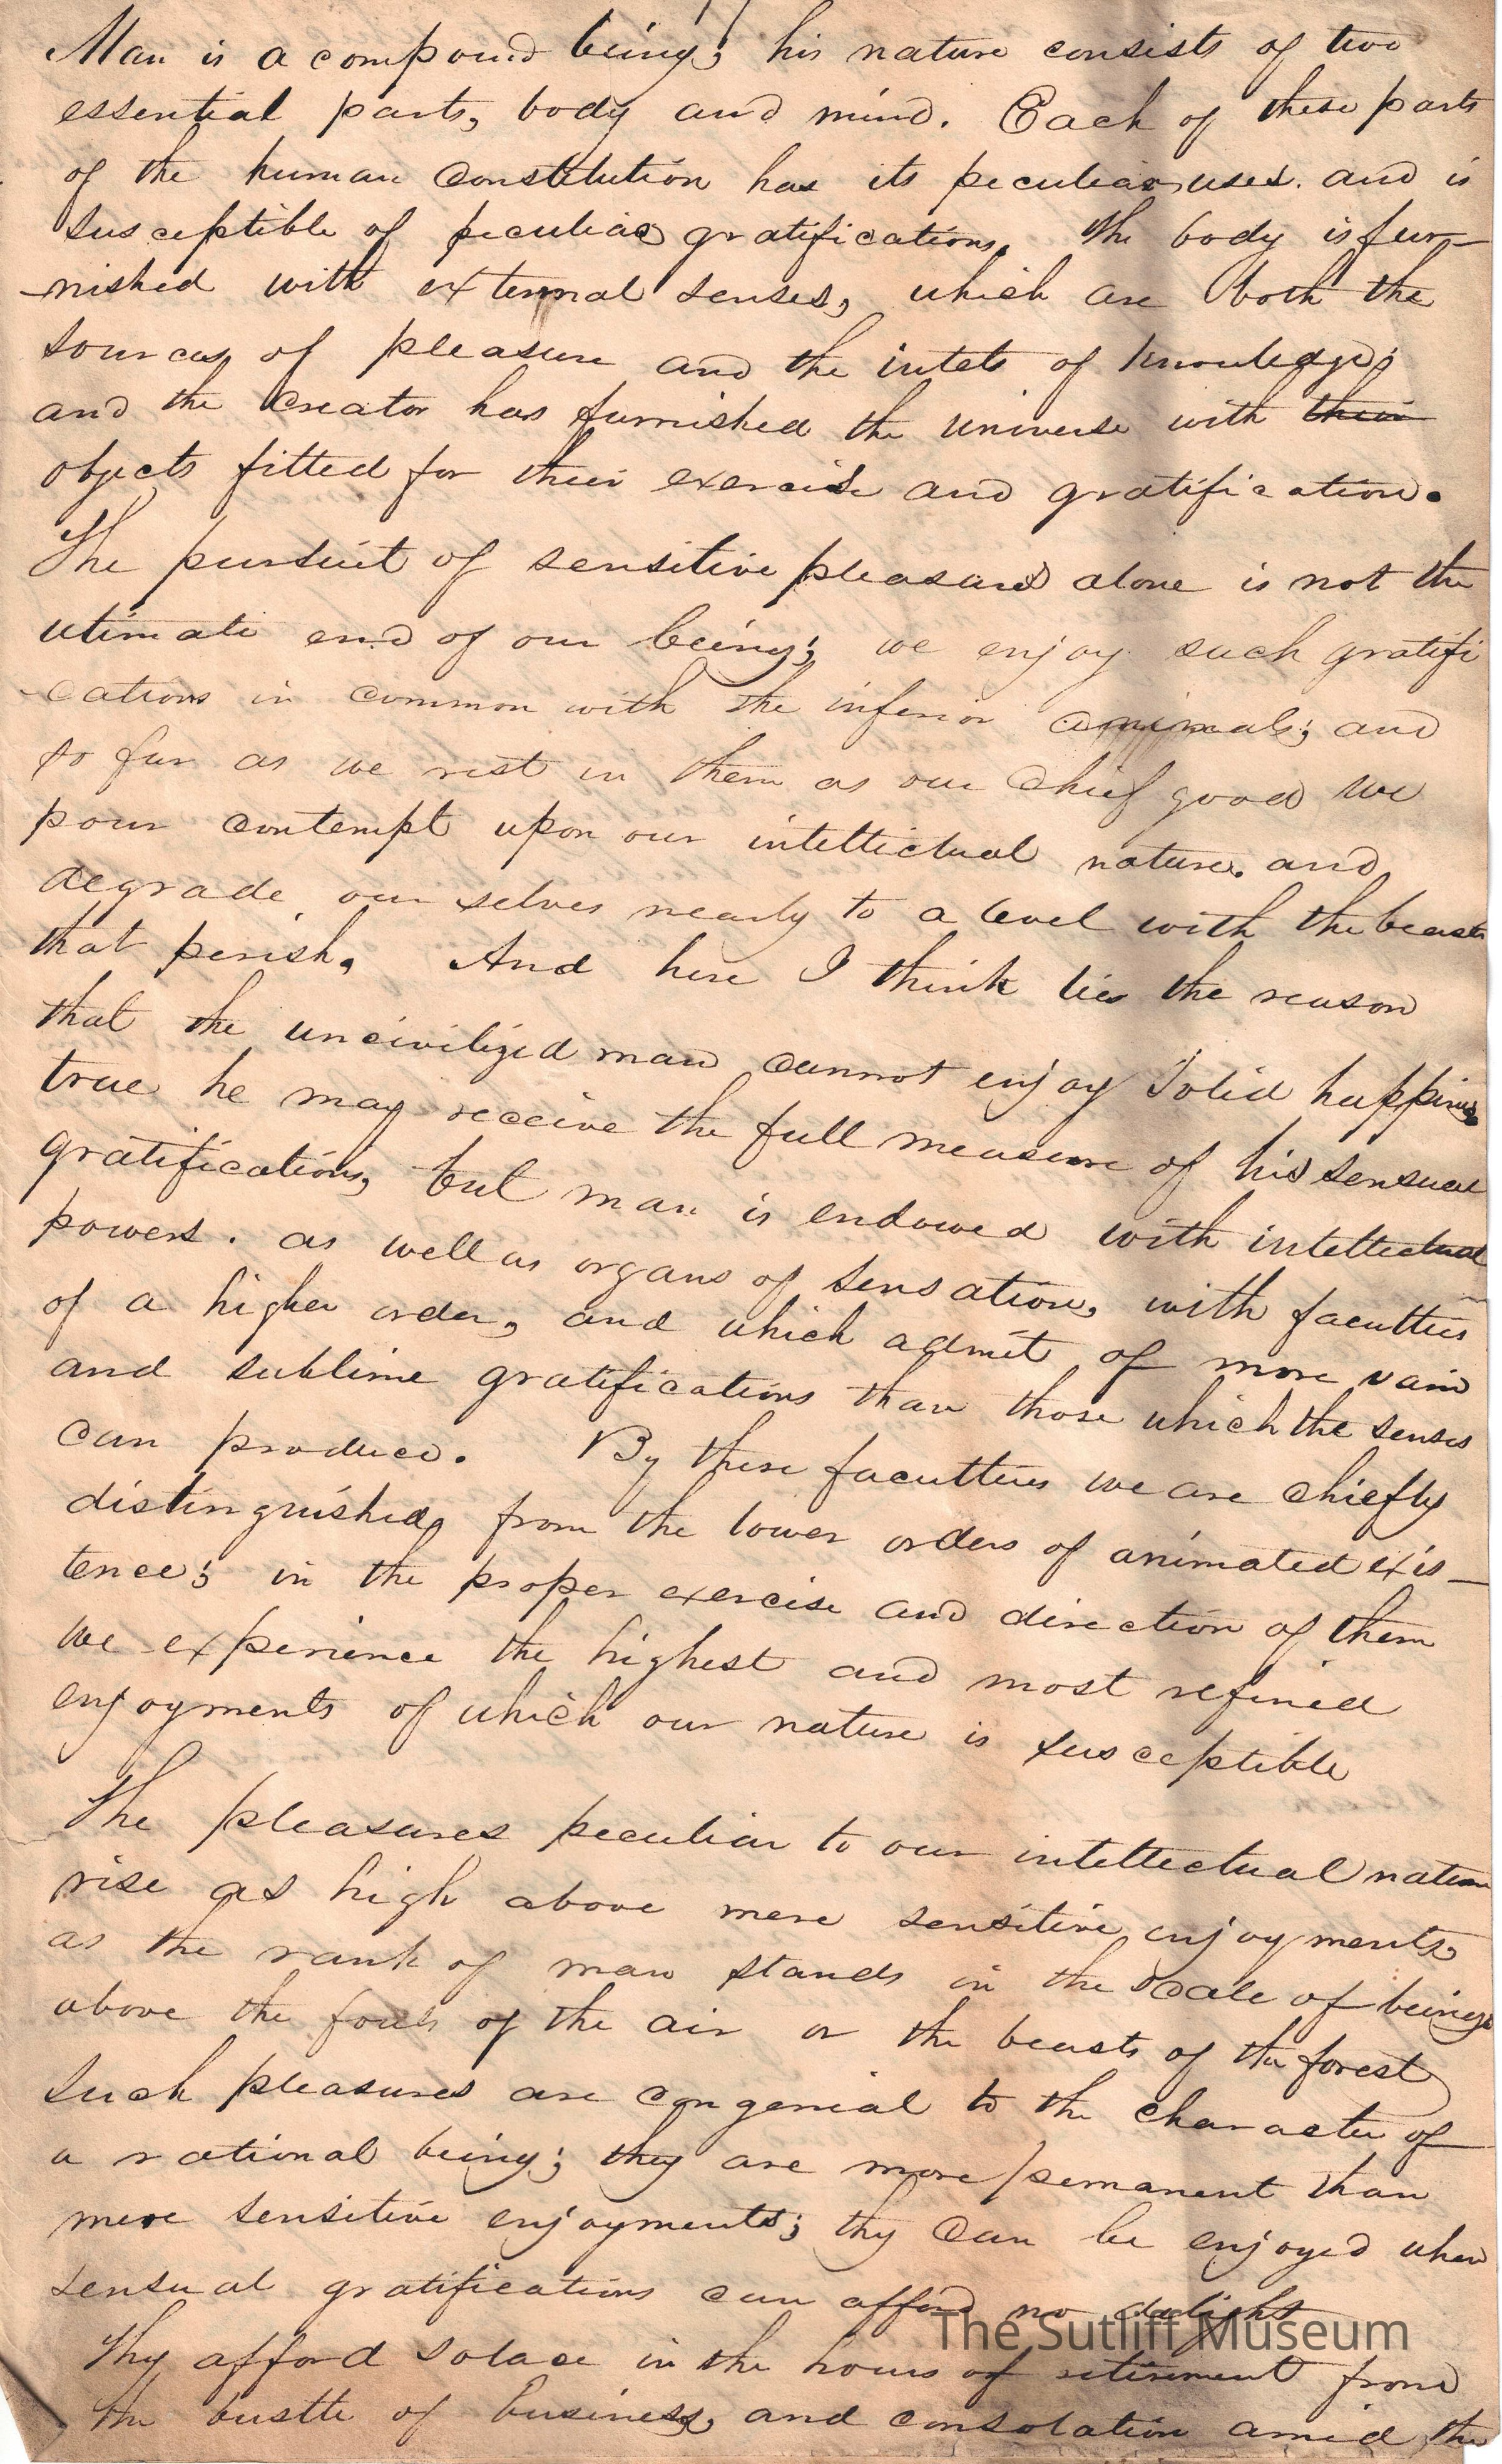 Man is a compound being; his nature consists of two
essential parts, body and mind. Each of these parts
of the human constitution has its peculiar uses. and is
susceptible of peculiar gratifications. The body is fur-
-nished with external senses, which are both the
sources of pleasure and the intets of knowledge;
and the Creator has furnished the universe with their
objects fitted for their exercise and gratification.
The pursuit of sensitive pleasures alone is not the
utimate end of our being; we enjoy such gratifi
-cations in common with the inferior animals; and
so far as we rest in them as our chief good we
pour contempt upon our intellectual nature. and
degrade our selves nearly to a level with the beasts
that perish. And here I think lies the reason
that the uncivilized man cannot enjoy solid happiness.
true he may receive the full measure of his sensual
gratifications, but man is endowed with intellectual
powers. as well as organs of sensation, with faculties
of a higher order, and which admit of more varid
and sublime gratifications than those which the senses
can produce. By these faculties we are chiefly
distinguished from the lower orders of animated exis-
tence; in the proper exercise and direction of them
we experience the highest and most refined
enjoyments of which our nature is susceptible
The pleasures peculiar to our intellectual nature
rise as high above mere sensitive enjoyments,
as the rank of man stands in the scale of beings
above the fouls of the air or the beasts of the forest
Such pleasures are congenial to the character of
a rational being; they are more permanent than
mere sensitive enjoyments; thy can be enjoyed when
sensual gratifications can afford no delight
Thy afford solace in the hours of retirement from
the bustle of business, and consolation amid the
The Sutliff Museum